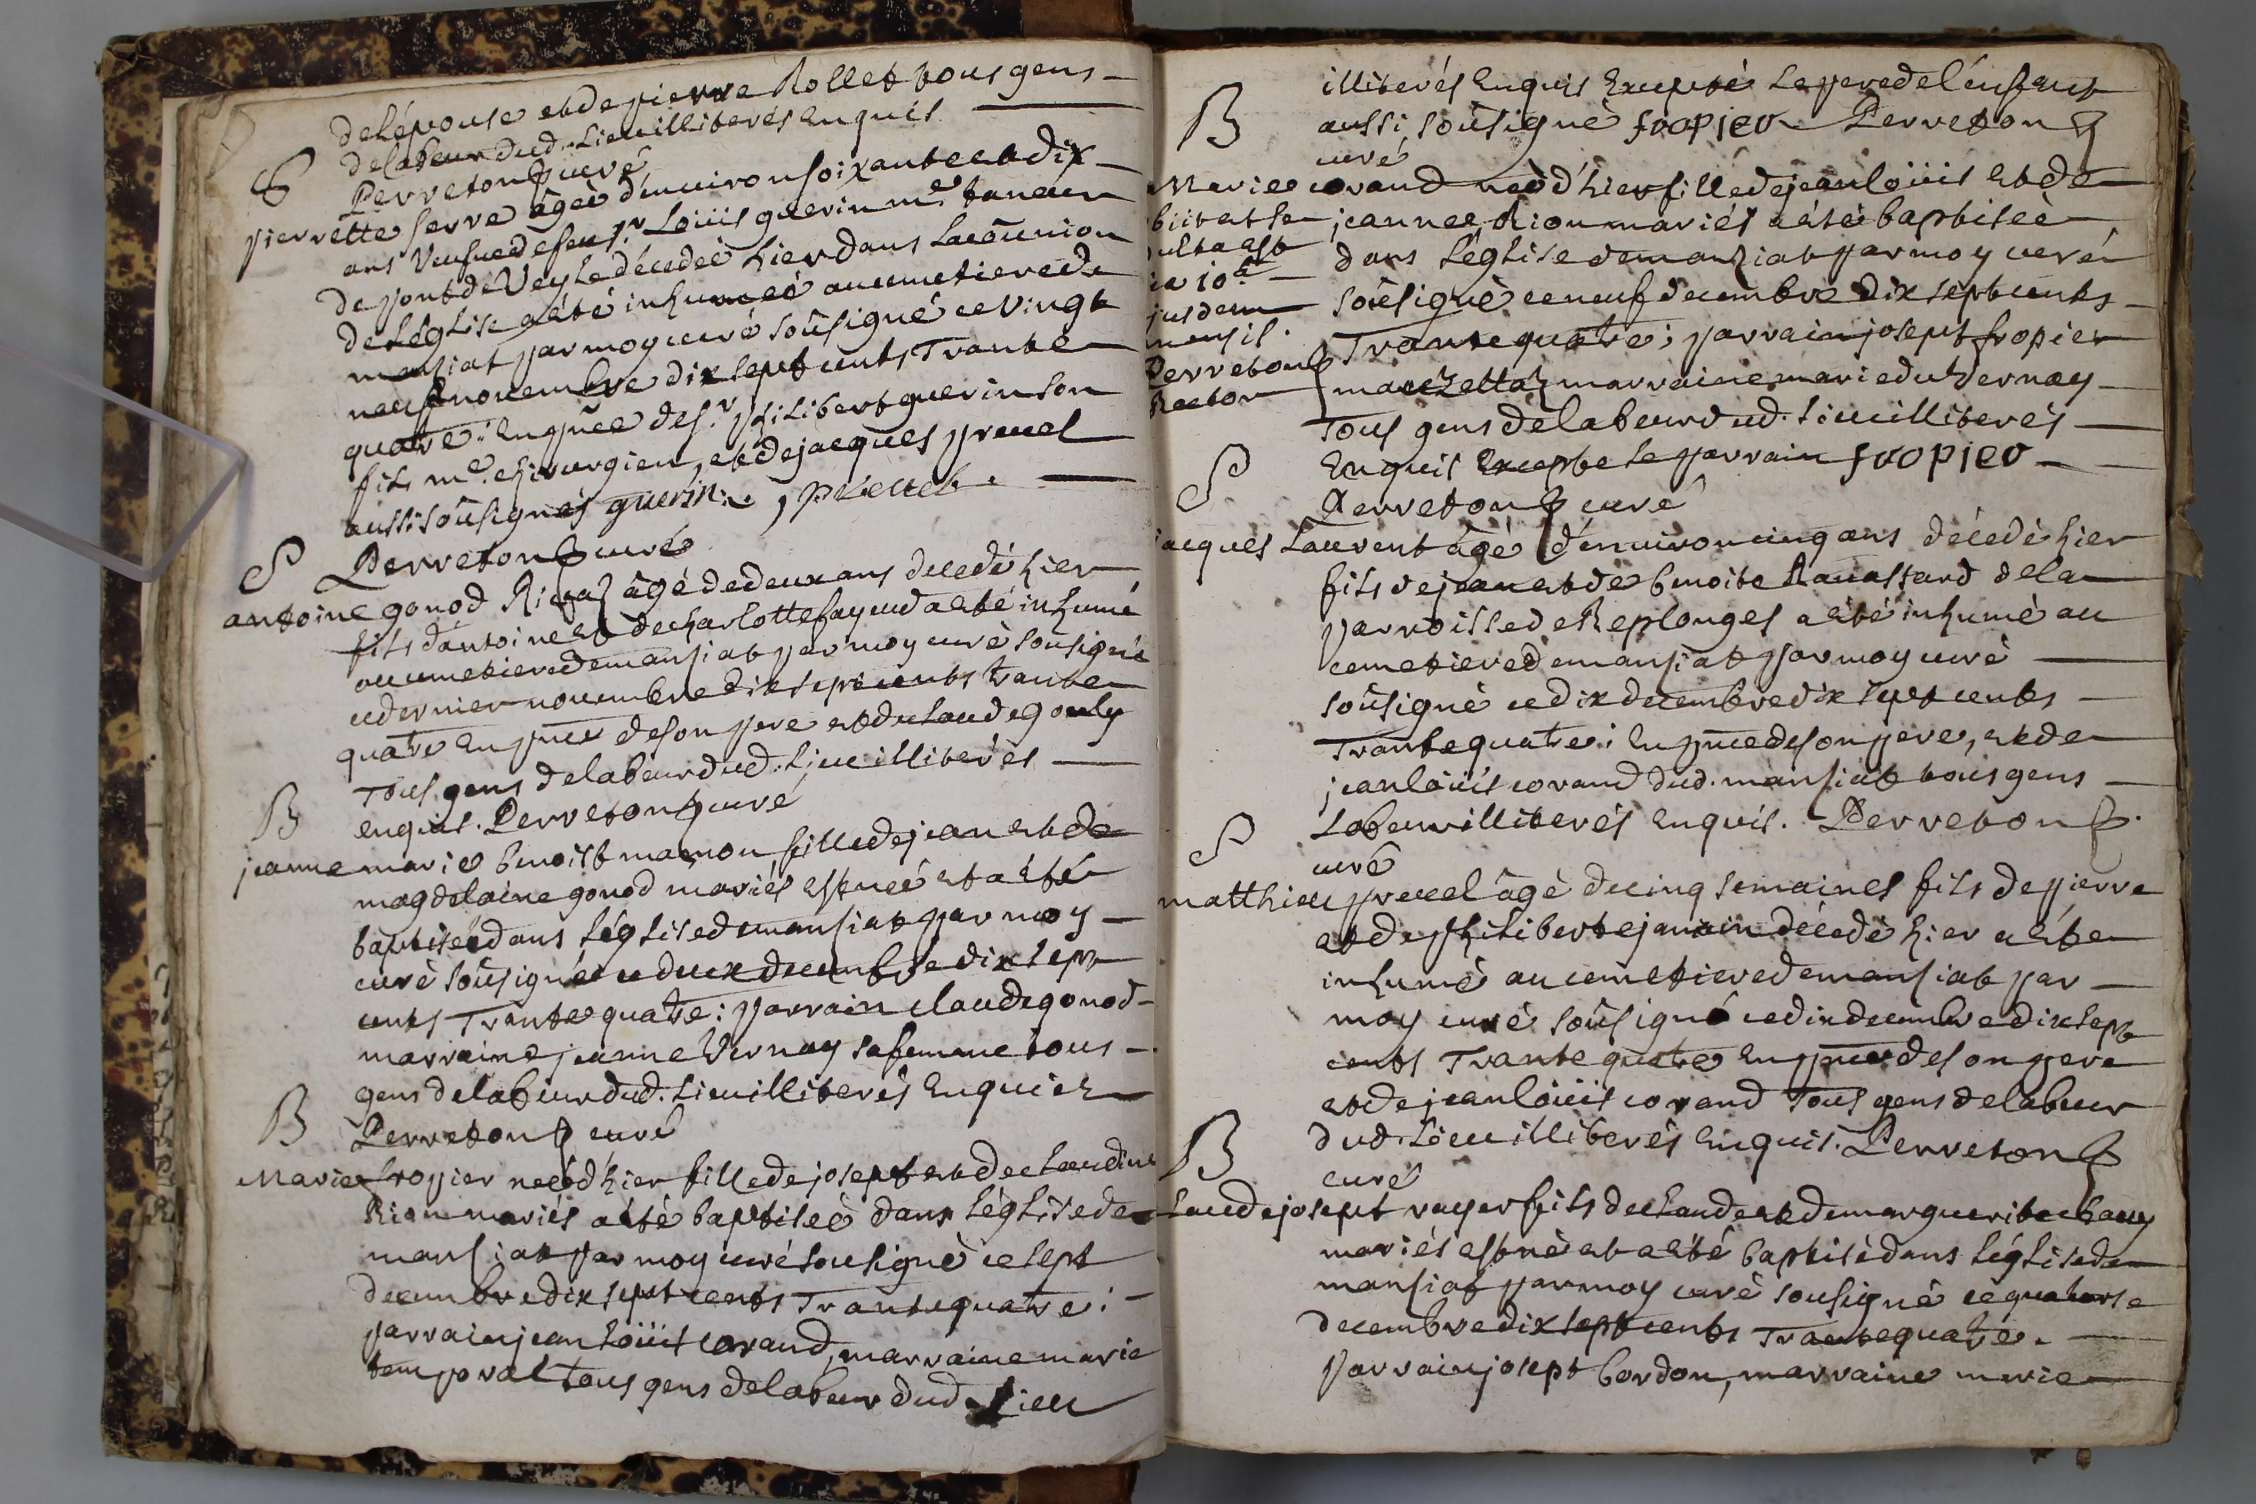 de lépouse et de pierre Rollet tous gens
de labeur dud. Lieu illiterés enquis
Perreton curé
S
pierrette serre âgée d'environ soixante et dix
ans Veufve de feu sr. Loüis guerin me. taneur
de pont de Veyle décedeé hier dans La cõunion
de L'église a été inhumeé au cimetiere de
mansiat par moy curé soûsigné ce vingt
neuf novembre dix sept cents Trante
quatre: en pñce de sr. philibert guerin son
fils me. chirurgien, et de jacques preuel
aussi soûsignés guerin
Perreton curé
S
antoine gonod Rifaz âgé de deux ans decedé hier
fils d'antoine et de charlotte fayeud a été inhumé
au cimetiere de mansiat par moy curé soûsigné
ce dernier novembre dix sept cents trante
quatre en pñce de son pere et de claude gouly
Tous gens de labeur dud. Lieu illiterés
enquis. Perreton curé
B
jeanne marie benoist manon fille de jean et de
magdelaine gonod mariés est neé et a été
baptiseé dans Léglise de mansiat par moy
curé soûsigné ce deux decembre dix sept
cents Trante quatre: parrain claude gonod
marraine jeanne Vernay sa femme tous
gens de labeur dud. Lieu illiterés Enquiez
Perreton curé
B
Marie fropier neé d'hier fille de josept et de claudine
Rion mariés a été baptiseé dans Léglise de
mansiat par moy curé soûsigné ce sept
decembre dix sept cents Trante quatre:
parrain jean Loüis corand, marraine marie
temporal Tous gens de labeur dud. Lieu
illiterés Enquis Excepté Le pere de lénfant
B
aussi soûsigné fropier Perreton
curé
Marie corand neé d'hier fille de jean loüis et de
jeanne Rion mariés a été baptiseé
dans Léglise de mansiat par moy curé
soûsigné ce neuf decembre dix sept cents
Trante quatre; parrain josept fropier
marraine marie du Vernay
Tous gens de labeur dud. Lieu illiterés
Enquis Excepte Le parrain fropier
Perreton curé
obiit et se
pulta est
die 10a
ejusdem
mensis.
Perreton
Rector
S
jacques Laurent âgé d'environ cinq ans décedé hier
fils de jean et de benoite Rauassard de la
parroisse de Replonges a été inhumé au
cemetiere de mansiat par moy curé
soûsigné ce dix decembre dix sept cents
Trante quatre: En pñce de son pere, et de
jean loüis corand dud. mansiat tous gens
Labeur illiterés Enquis. Perreton
curé
S
matthieu preuel âgé de cinq semaines fils de pierre
et de philiberte janain décedé hier a été
inhumé au cemetiere de mansiat par
moy curé soûsigné ce dix decembre dix sept
cents Trante quatre En pñce de son pere
et de jean loüis corand Tous gens de labeur
dud. Lieu illiterés Enquis. Perreton
curé
B
claude josept rayer fils de claude et de marguerite chauy
mariés est né et a été baptisé dans Léglise de
mansiat par moy curé soûsigné ce quatorse
decembre dix sept cents Trante quatre.
Parrain josept bordon, marraine marie